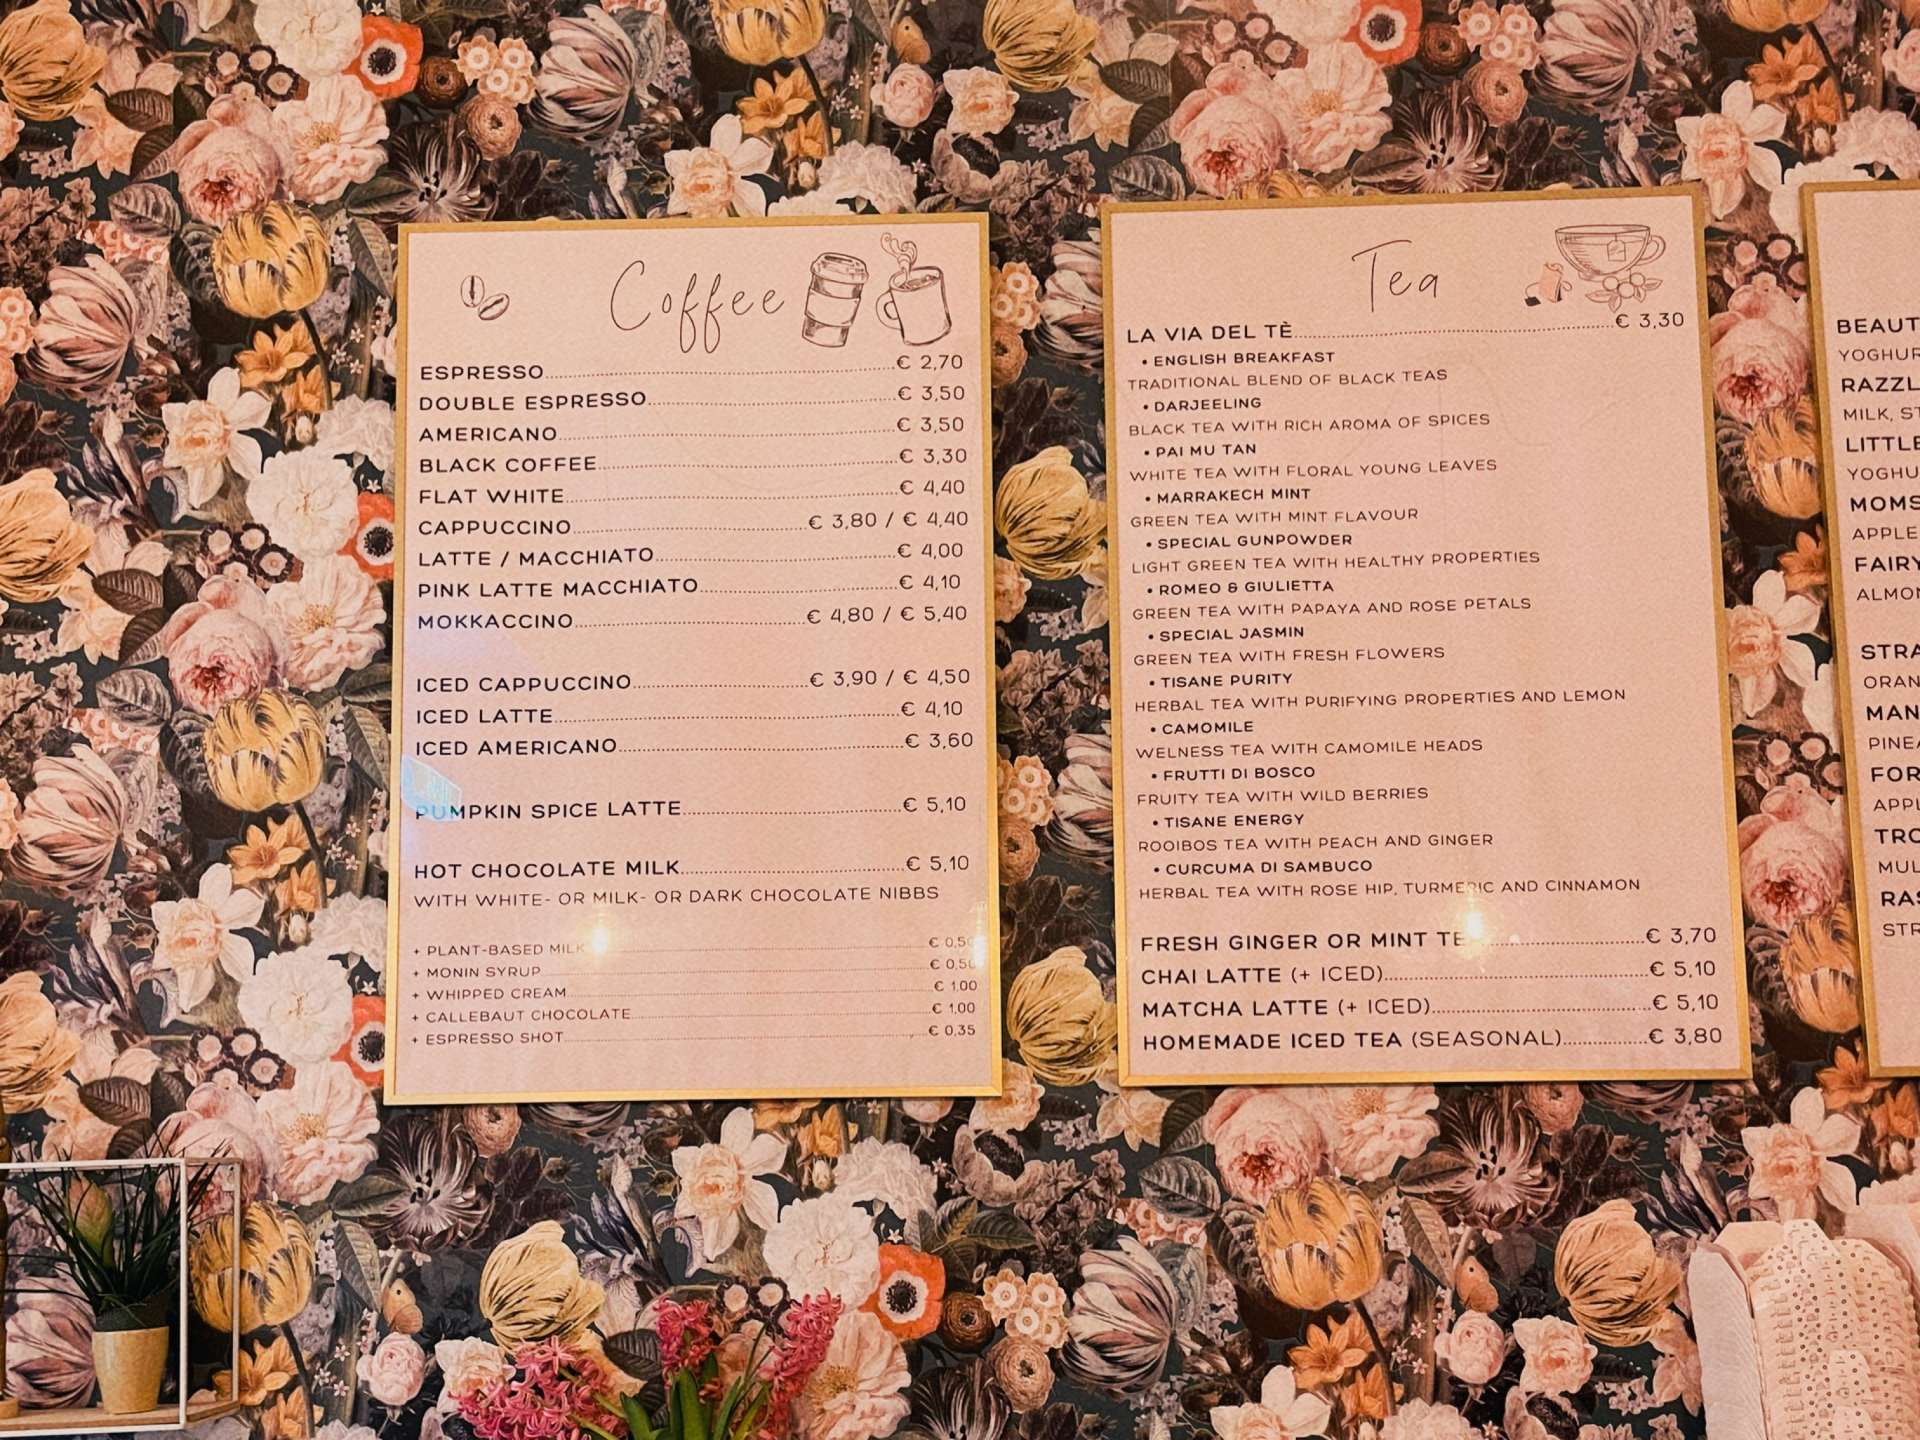 Coffee
ESPRESSO € 2,70
DOUBLE ESPRESSO € 3,50
AMERICANO € 3,50
BLACK COFFEE € 3,30
FLAT WHITE € 4,40
CAPPUCCINO € 3,80 / € 4,40
LATTE / MACCHIATO € 4,00
PINK LATTE MACCHIATO € 4,10
MOKKACCINO € 4,80 / € 5,40
ICED CAPPUCCINO € 3,90 / € 4,50
ICED LATTE € 4,10
ICED AMERICANO € 3,60
PUMPKIN SPICE LATTE € 5,10
HOT CHOCOLATE MILK € 5,10
WITH WHITE- OR MILK- OR DARK CHOCOLATE NIBBS
+ PLANT-BASED MILK € 0,50
+ MONIN SYRUP € 0,50
+ WHIPPED CREAM € 1,00
+ CALLEBAUT CHOCOLATE € 1,00
+ ESPRESSO SHOT € 0,35
Tea
LA VIA DEL TÈ € 3,30
• ENGLISH BREAKFAST
TRADITIONAL BLEND OF BLACK TEAS
• DARJEELING
BLACK TEA WITH RICH AROMA OF SPICES
• PAI MU TAN
WHITE TEA WITH FLORAL YOUNG LEAVES
• MARRAKECH MINT
GREEN TEA WITH MINT FLAVOUR
• SPECIAL GUNPOWDER
LIGHT GREEN TEA WITH HEALTHY PROPERTIES
• ROMEO & GIULIETTA
GREEN TEA WITH PAPAYA AND ROSE PETALS
• SPECIAL JASMIN
GREEN TEA WITH FRESH FLOWERS
• TISANE PURITY
HERBAL TEA WITH PURIFYING PROPERTIES AND LEMON
• CAMOMILE
WELNESS TEA WITH CAMOMILE HEADS
• FRUTTI DI BOSCO
FRUITY TEA WITH WILD BERRIES
• TISANE ENERGY
ROOIBOS TEA WITH PEACH AND GINGER
• CURCUMA DI SAMBUCO
HERBAL TEA WITH ROSE HIP, TURMERIC AND CINNAMON
FRESH GINGER OR MINT TEA € 3,70
CHAI LATTE (+ ICED) € 5,10
MATCHA LATTE (+ ICED) € 5,10
HOMEMADE ICED TEA (SEASONAL) € 3,80
BEAUT
YOGHUR
RAZZL
MILK, ST
LITTLE
YOGHU
MOMS
APPLE
FAIRY
ALMON
STRA
ORAN
MAN
PINEA
FOR
APPL
TRO
MUL
RAS
STR